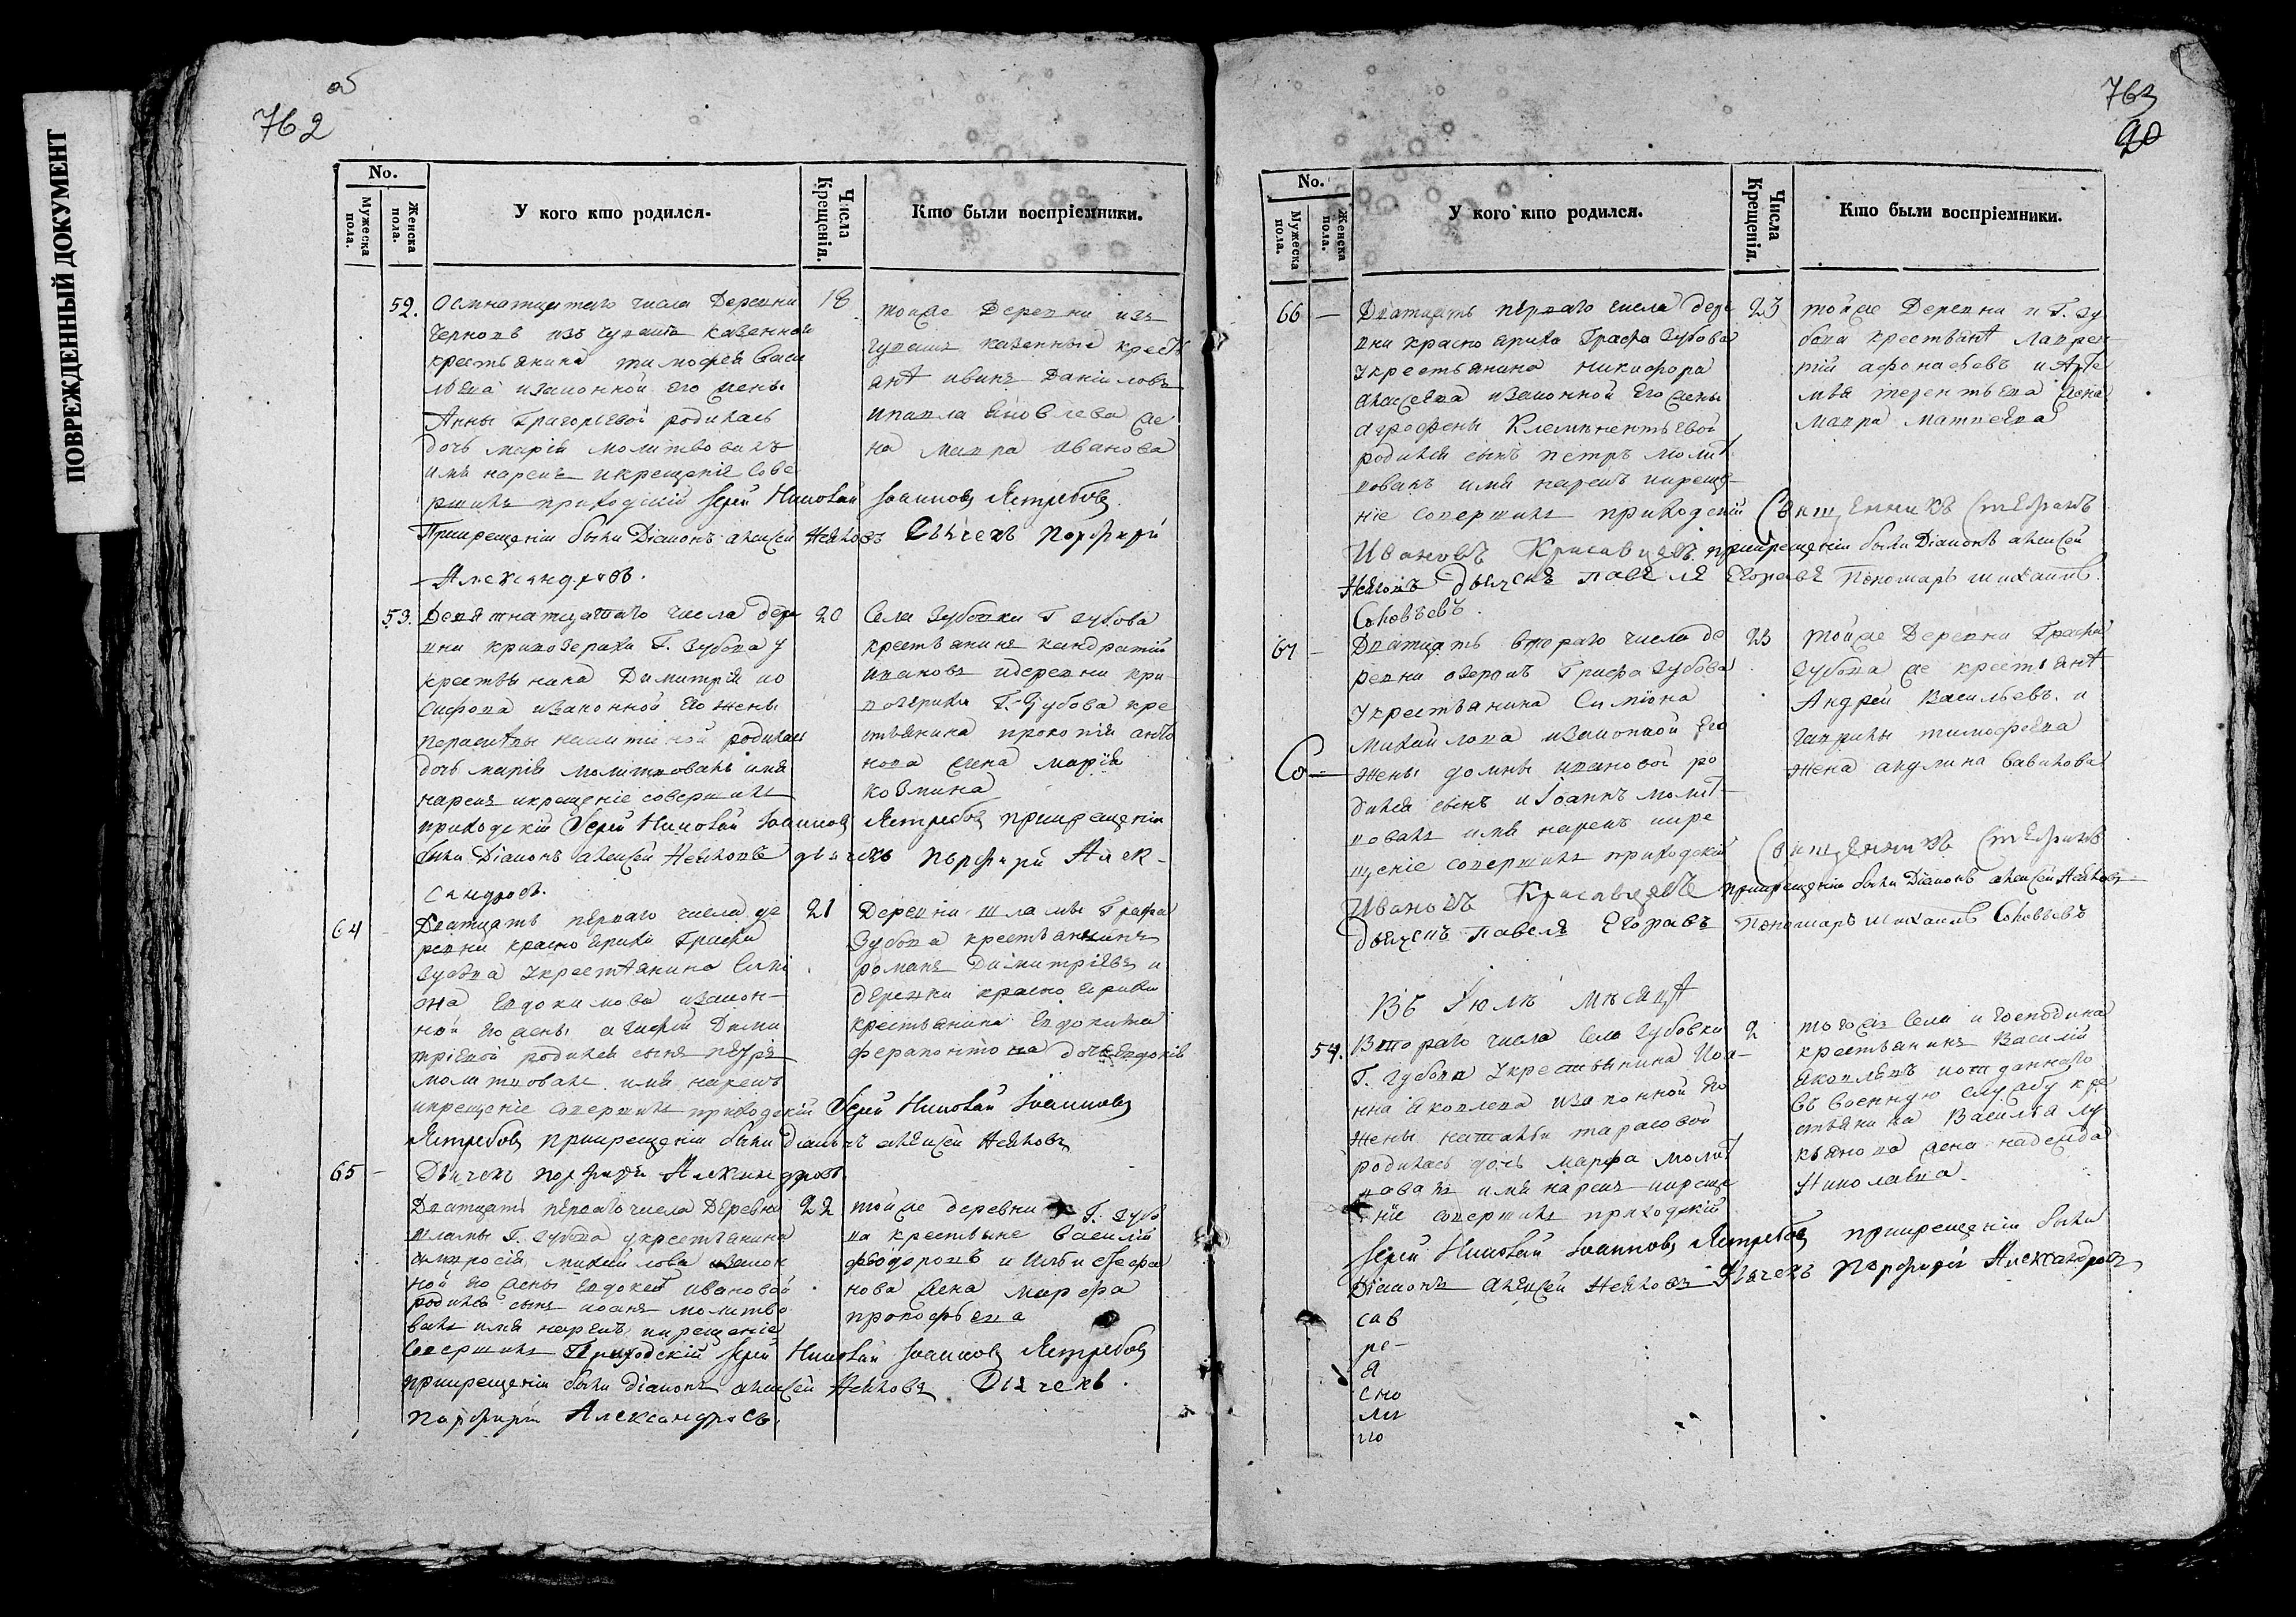 ПОВРЕЖДЕННЫЙ ДОКУМЕНТ
об
762
No.
Мужеска пола.
Женска пола.
У кого кто родился.
Числа Крещенія.
Кто были воспріемники.
52.
Осмнатцатаго числа Деревни
изъ казеннаго
крестьянина тимофея Васи
льева изаконной его жены
Анны Григорьевой родилась
дочь марія молитвовалъ
имя нарекъ икрещеніе Сове
ршилъ приходскій Іерей Николай Іоанновъ Ястребовъ
Прикрещеніи были Діаконъ алексей Дьячекъ Порфирій
Александровъ.
18
тойже Деревни изъ
казенныя кресть
янъ ивинъ Даниловъ
ипавла Яковлева же
на мавра иванова
53.
Девятнатцатаго числа дере
вни Г. Зубова у
крестьянина Димитрія ио
сифова изаконной его жены
родилась
дочь марія молитвовалъ имя
нарекъ икрещеніе совершилъ
приходскій Іерей Николай Іоанновъ Ястребовъ прикрещеніи
были Діаконъ алексей дьячекъ Порфирій Алек-
сандровъ.
20
Села Зубовки Г Зубова
крестьянинъ кандратій
ивановъ идеревни кри
Г. Зубова кре
стьянина прокопія анто
нова жена марія
козмина
64
Дватцать перваго числа де
ревни красно ярики Графа
Зубова Укрестьянина Симі
она Евдокимова изакон-
ной его жены агафіи Дими
тріевой родился сынъ петръ
молитвовалъ имя нарекъ
икрещеніе совершилъ приходскій Іерей Николай Іоанновъ
Ястребовъ прикрещеніи были діаконъ алексей
Дьячекъ Порфирій Александровъ.
21
Деревни шламы Графа
Зубова крестьянинъ
романъ Димитріевъ и
деревни красно ярики
крестьянина Евдокима
ферапонтова дочь Евдокія
65
Дватцать перваго числа Деревни
шламы Г. Зубова укрестьянина
амвросія михайлова изакон
ной его жены Евдокеи ивановой
родился сынъ иоанъ молитво
валъ имя нарекъ икрещеніе
Совершилъ Приходскій Іерей Николай Іоанновъ Ястребовъ
прикрещеніи были діаконъ алексей Дьячекъ
Порфирій Александровъ.
22
тойже деревни Г. Зубо
ва крестьяне Василій
фьодоровъ и Ильи Стефа
нова жена марфа
прокофьева
763
90
No.
Мужеска пола.
Женска пола.
У кого кто родился.
Числа Крещенія.
Кто были воспріемники.
66
Дватцать перваго числа дере
вни красно ярика Графа Зубова
Укрестьянина никифора
алексеева изаконной Его жены
агрофены Клементьевой
родился сынъ петръ молит
вовалъ имя нарекъ икреще-
ніе совершилъ приходскій Священникъ Стефанъ
Ивановъ Красавцевъ прикрещеніи были Діаконъ алексей
дьячекъ павелъ Егоравъ Пономарь михаилъ
Соловьевъ.
23
тойже Деревни и Г. Зу
бова крестьянъ лаврен-
тій афонасьевъ и Арте
мья терентьева жена
мавра матвеева
67
Дватцать втораго числа де
ревни озеровъ Графа Зубова
Укрестьянина Симіона
михайлова изаконной его
жены домны ивановой ро
дился сынъ иІоаннъ молит-
вовалъ имя нарекъ икре
щеніе совершилъ приходскій Священникъ Стефанъ
Ивановъ Красавцевъ прикрещеніи были Діаконъ алексей
дьячекъ павелъ Егоравъ Пономарь михаилъ Соловьевъ
23
тойже Деревни Графа
Зубова же крестьянъ
Андрей Васильевъ и
гаврилы тимофеева
жена акулина
Въ Іюлѣ мѣсяцѣ
54.
Втораго числа Села Зубовки
Г. Зубова Укрестьянина Иоа-
нна Яковлева изаконной его
жены наталіи тарасовой
родилась дочь марфа молит
вовалъ имя нарекъ икреще
ніе совершилъ приходскій
Іерей Николай Іоанновъ Ястребовъ прикрещеніи были
Діаконъ алексей Дьячекъ Порфирій Александровъ
2
тогожъ Села и господина
крестьянинъ Василій
Яковлевъ иотданнаго
въ военную службу кре
стьянина Василья лу
кьянова жена надежда
Николаева.
сав
ре-
я
сно
ли
но